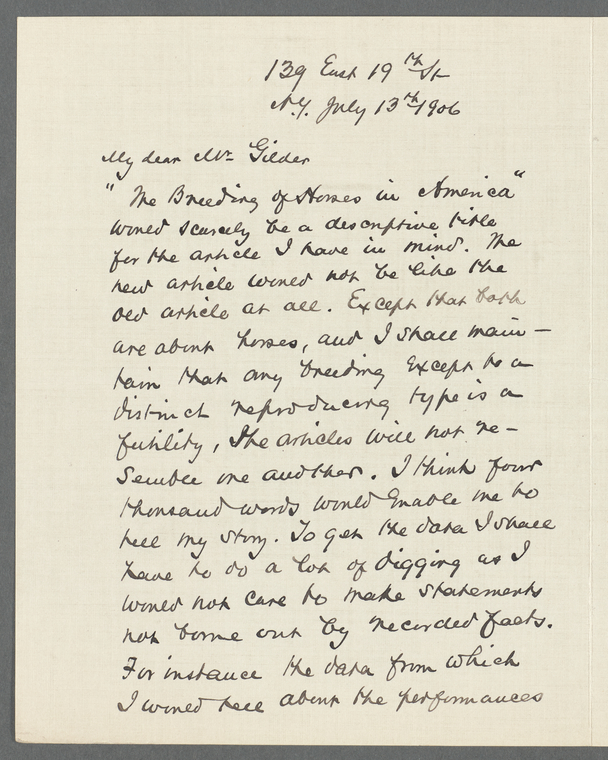 139 East 19th St
N.Y. July 13th 1906
My dear Mr. Gilder
"The Breeding of Horses in America"
would scarcely be a descriptive title
for the article I have in mind. The
new article would not be like the
old article at all. Except that both
are about horses, and I shall main-
tain that any breeding except to a
distinct reproducing type is a
futility, The articles will not re-
semble one another. I think four
thousand words would enable me to
tell my story. To get the data I shall
have to do a lot of digging as I
would not care to make statements
not borne out by recorded facts.
For instance the data from which
I would tell about the performances